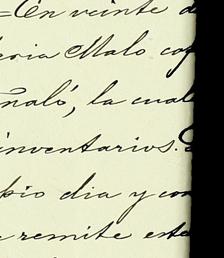 =En veinte d
eria Malo cap
naló, la cual
inventarios.
pio dia y con
e remite este